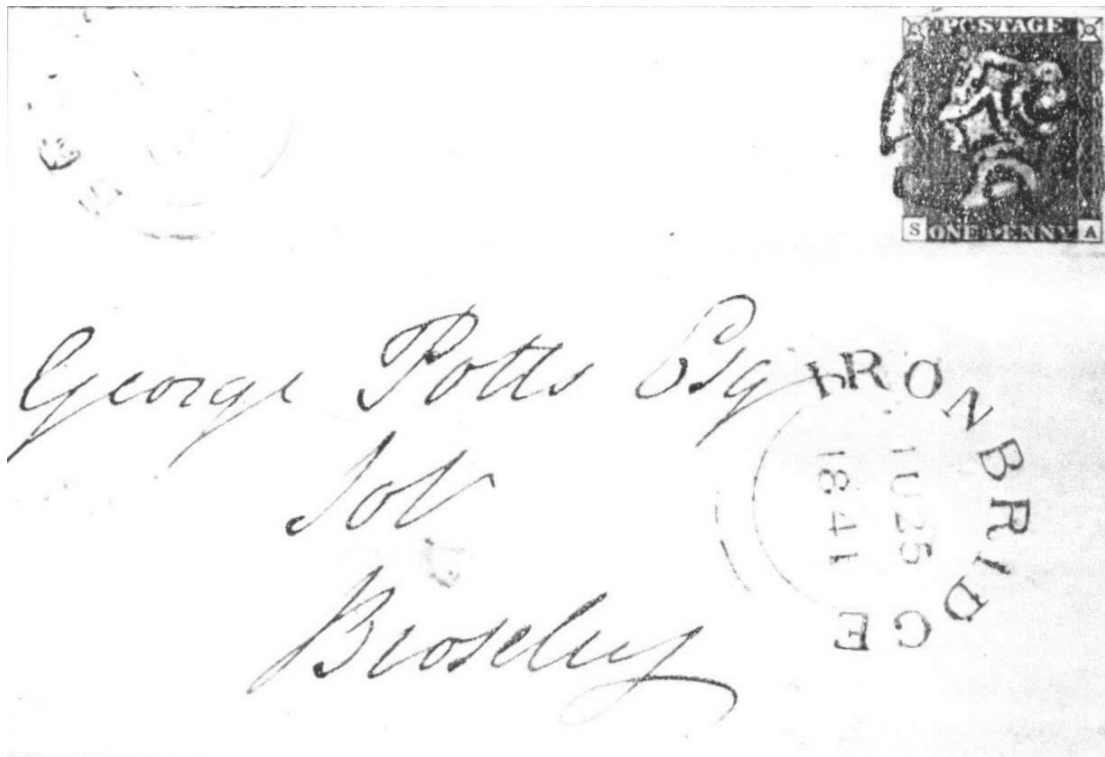 POSTAGE
S ONE PENNY A
George Potts Esq
Sol
Broseley
IRONBRIDGE
JU 25
1841